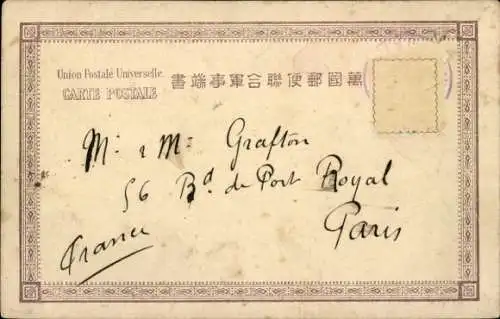 Union Postale Universelle.
CARTE POSTALE
書端郵事軍合聯便郵國萬
Mr & Mr Grafton
56 Bd de Port Royal
Paris
France